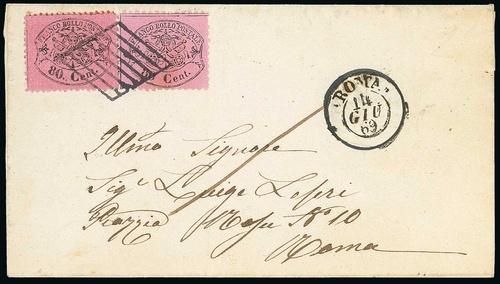 FRANCO BOLLO POSTALE
80. Cent.
FRANCO BOLLO POSTALE
Cent.
ROMA
14
GIU
69
Illmo Signore
Sigr Luigi Lepri
Piazza Rosa No 10
Roma